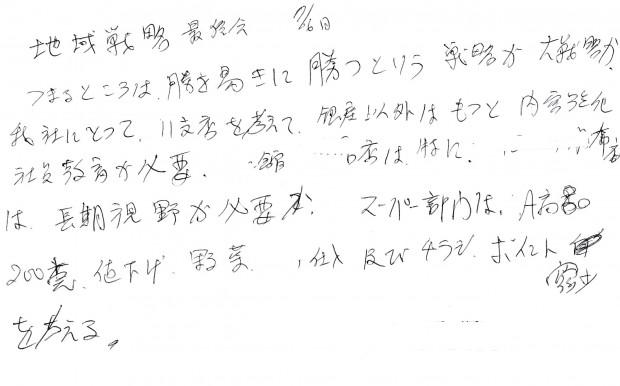 地域戦略 最終会 7/6日
つまるところは、勝を易きに勝つという戦略が大戦略か、
我社にとって、11支店を考えて、銀座以外はもっと内容強化
社員教育が必要。 店は、特に、
は、長期視野が必要か。 スーパー部門は、A商品
200 値下げ、野菜、 及び チラシ、ポイント
を考える。